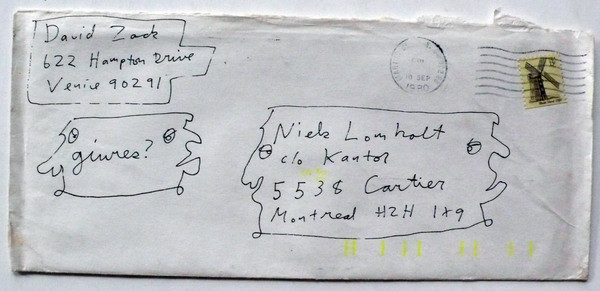 David Zack
622 Hampton Drive
Venice 90291
SEP
1980
giures?
Niels Lomholt
c/o Kantor
5538 Cartier
Montreal H2H 1X9